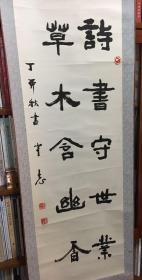 詩書守世業
草木含幽香
丁卯秋書